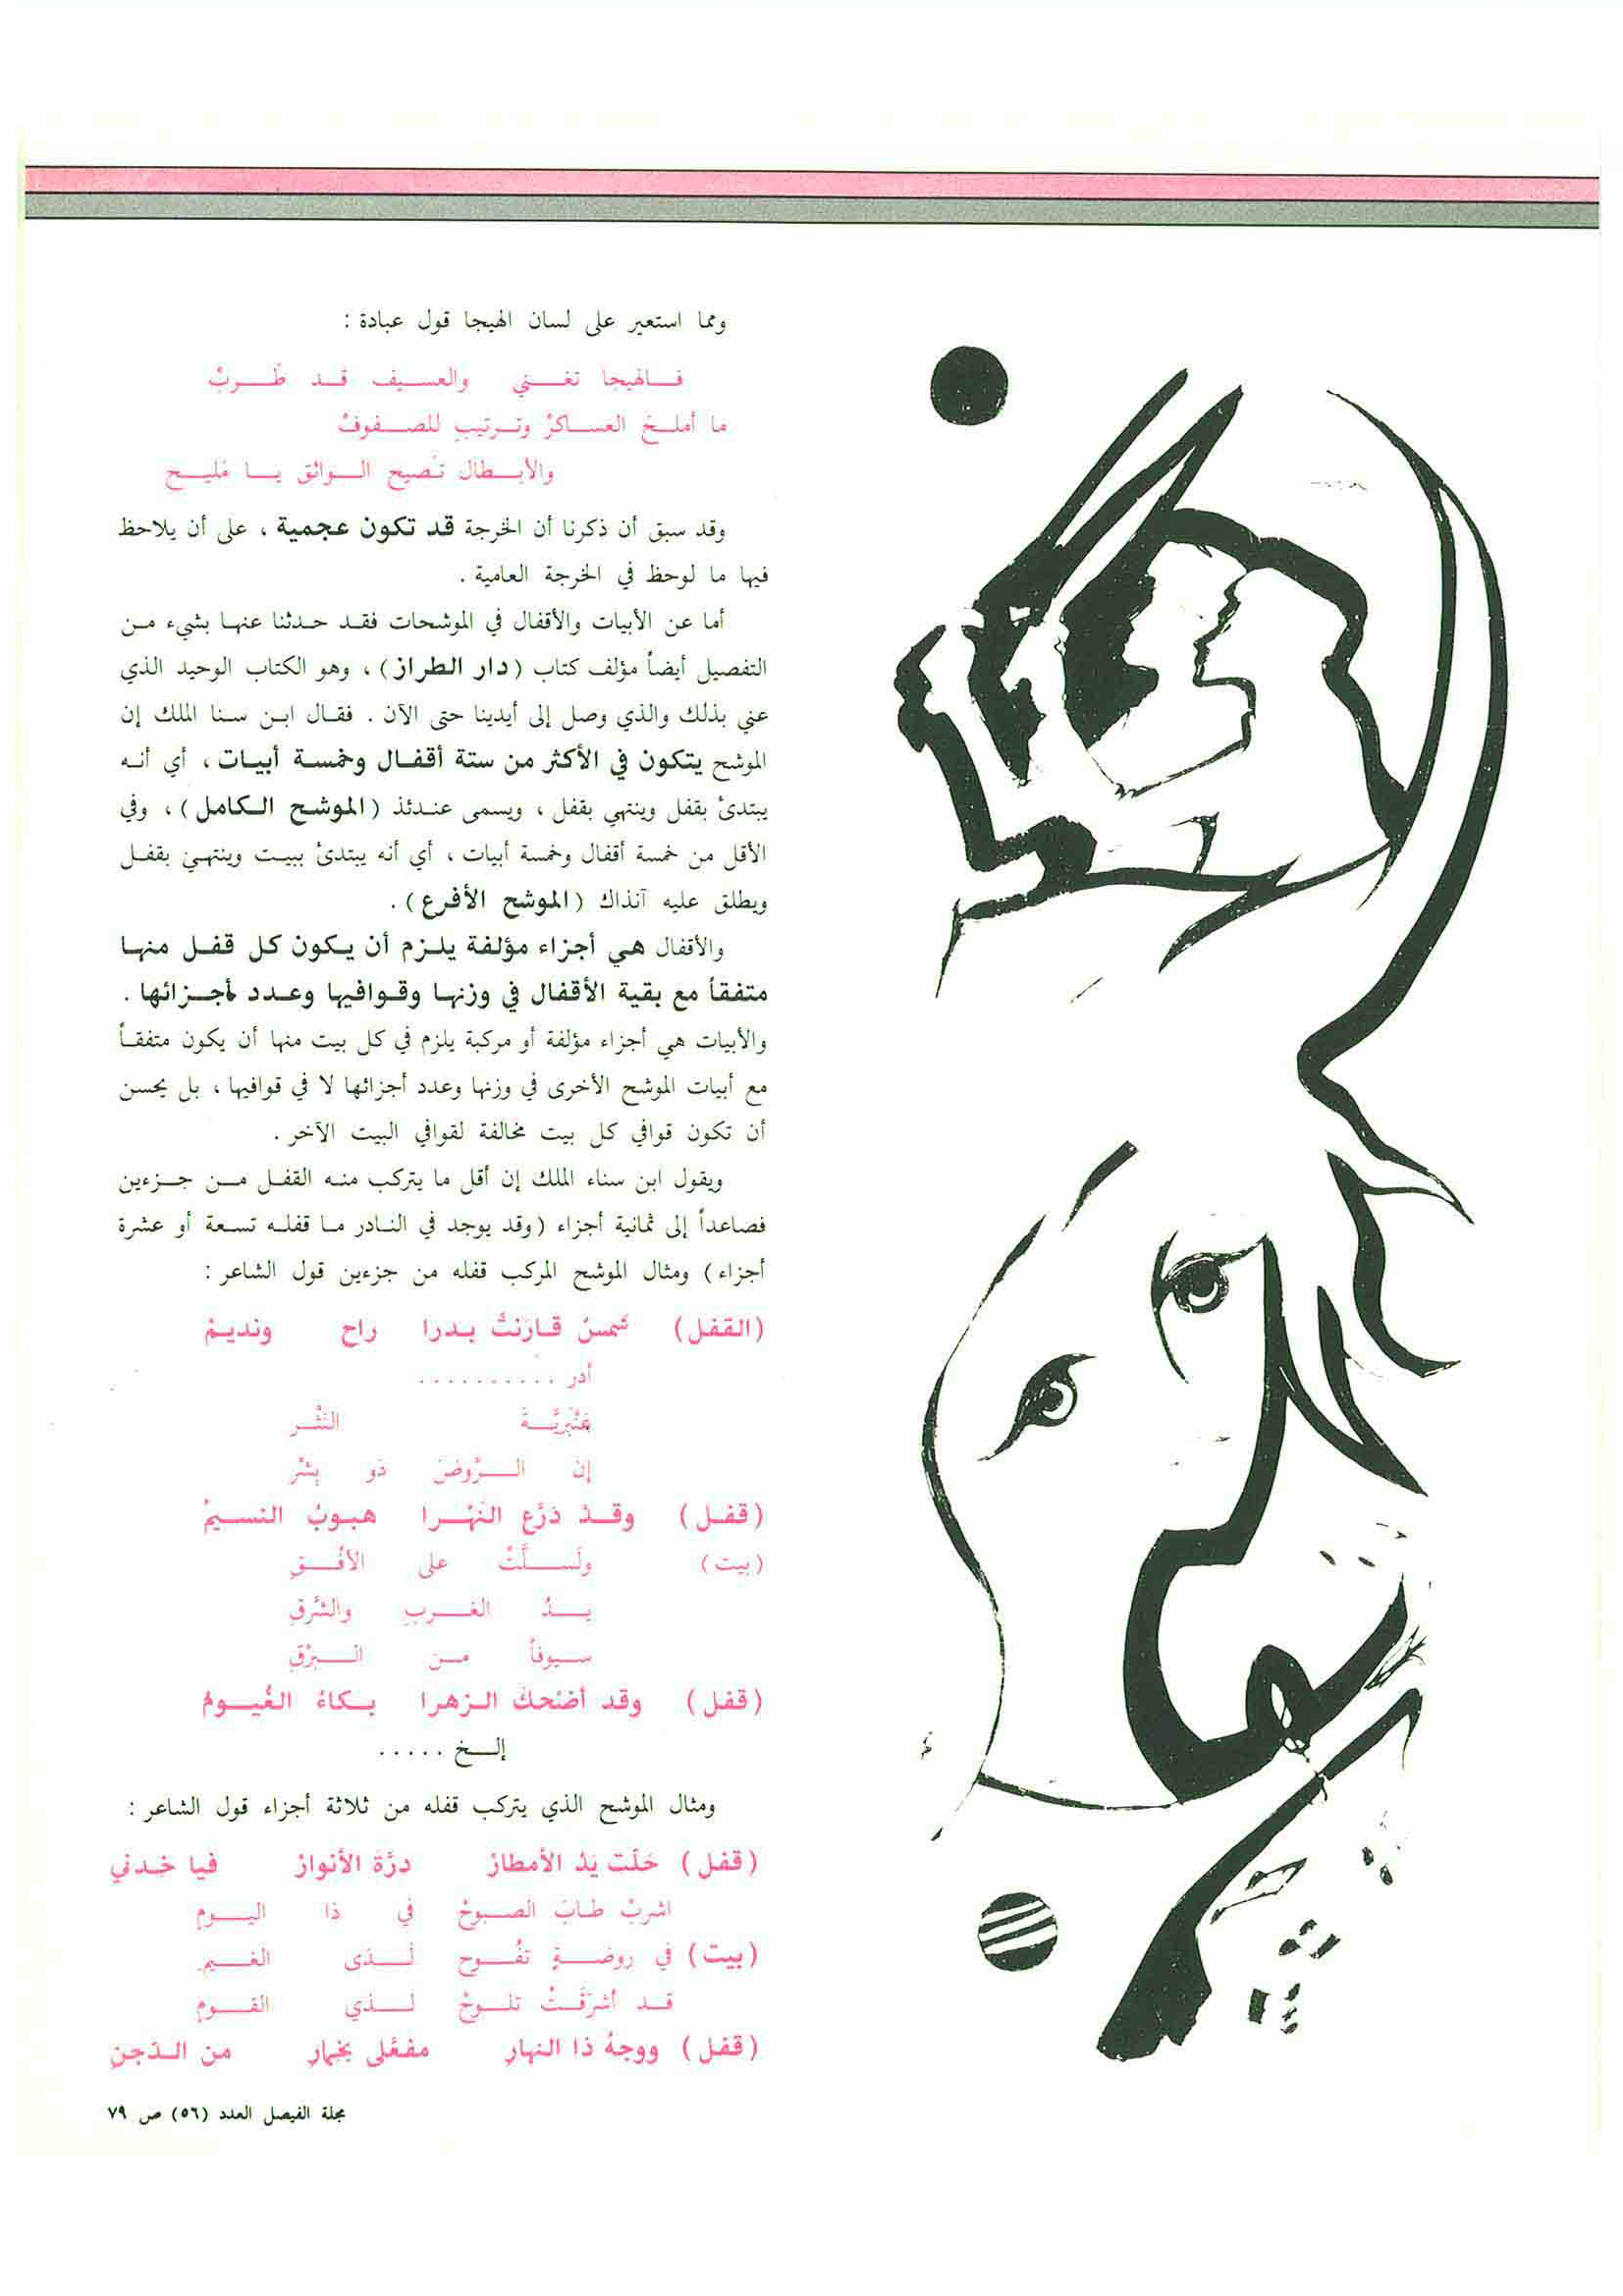 ومما استعير على لسان الهيجا قول عبادة :
فـالهيجا تغـني والعسيف قـد طَـربْ
ما أملـحَ العسـاكرْ وتـرتيبِ للصـفوفْ
والأبـطال تـصيح الـواثق يـا مَليـح
وقد سبق أن ذكرنا أن الخرجة قد تكون عجمية ، على أن يلاحظ
فيها ما لوحظ في الخرجة العامية .
أما عن الأبيات والأقفال في الموشحات فقـد حـدثنا عنهـا بشيء مـن
التفصيل أيضاً مؤلف كتاب (دار الطراز) ، وهو الكتاب الوحيد الذي
عني بذلك والذي وصل إلى أيدينا حتى الآن . فقـال ابـن سـنا الملك إن
الموشح يتكون في الأكثر من ستة أقفـال وخمسـة أبيـات ، أي أنـه
يبتدئ بقفل وينتهي بقفل ، ويسمى عنـدئذ (الموشح الـكامل) ، وفي
الأقل من خمسة أقفال وخمسة أبيات ، أي أنه يبتدئ ببيـت وينتهـي بقفـل
ويطلق عليه آنذاك (الموشح الأقرع) .
والأقفال هي أجزاء مؤلفة يلـزم أن يـكون كل قفـل منهـا
متفقاً مع بقية الأقفال في وزنهـا وقـوافيها وعـدد أجـزائها .
والأبيات هي أجزاء مؤلفة أو مركبة يلزم في كل بيت منها أن يكون متفقـاً
مع أبيات الموشح الأخرى في وزنها وعدد أجزائها لا في قوافيها ، بل يحسن
أن تكون قوافي كل بيت مخالفة لقوافي البيت الآخر .
ويقول ابن سناء الملك إن أقل ما يتركب منـه القفـل مـن جـزءين
فصاعداً إلى ثمانية أجزاء (وقد يوجد في النـادر مـا قفلـه تسـعة أو عشرة
أجزاء) ومثال الموشح المركب قفله من جزءين قول الشاعر :
(القفل) شمسٌ قـارَنتْ بـدرا راح ونديـمْ
أدر ..........
عَنْبَريَّـةَ النَشْـر
إن الـرَّوضَ ذو بِشْر
(قفـل) وقـدْ دَرَّع النَهْـرا هبـوبُ النسـيمْ
(بيت) وسَـلَّتْ على الأفُـقِ
يـدُ الغـربِ والشَرقِ
سـيوفاً مـن الـبرْقِ
(قفـل) وقد أضْحكَ الـزهرا بـكاءُ الغُيـومْ
إلـخ .....
ومثال الموشح الذي يتركب قفله من ثلاثة أجزاء قول الشاعر :
(قفل) حَلّت يَدُ الأمطارْ درَّة الأنوارْ فيا خدني
اشربْ طـابَ الصـبوحْ في ذا اليـوم
(بيت) في روضـةٍ تفُـوح لَـدَى الغـيم
قـد أشرَقَـتْ تلـوحْ لـذي القـوم
(قفل) ووجهُ ذا النهارِ بخمارِ من الـدّجنِ
مجلة الفيصل العدد (٥٦) ص ٧٩